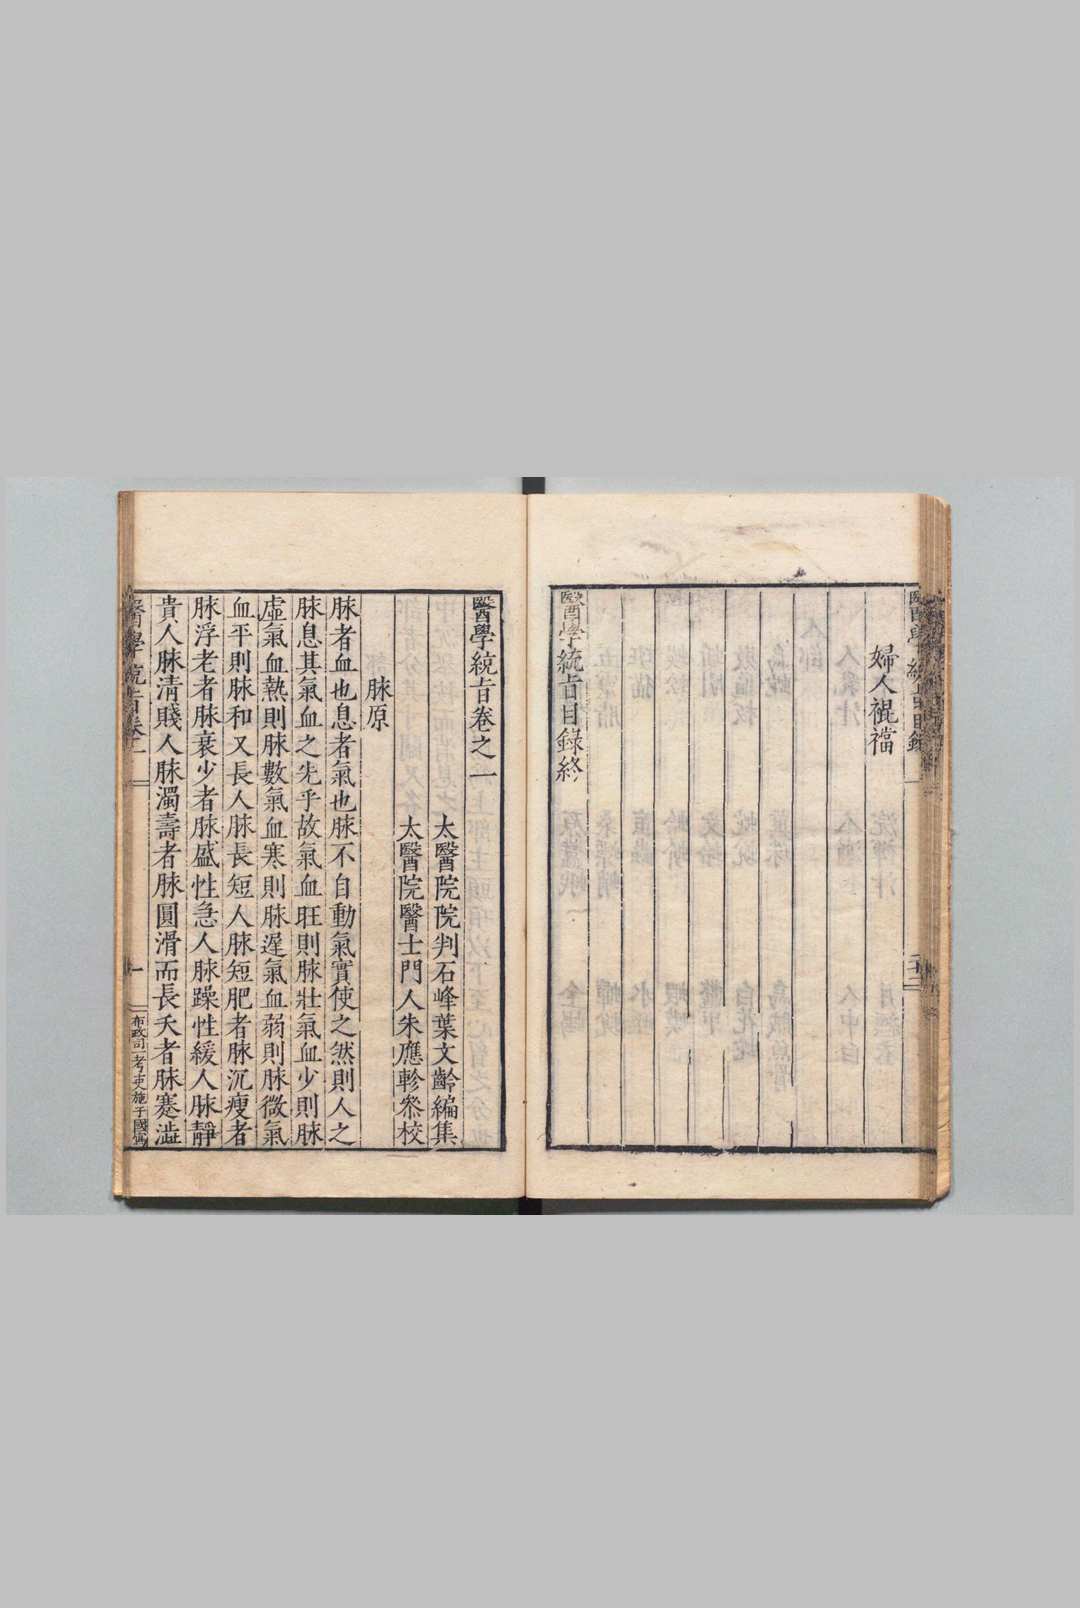 婦人裩襠
醫學統旨目錄終
醫學統旨卷之一
太醫院院判石峰葉文齡編集
太醫院醫士門人朱應軫叅校
脉原
脉者血也息者氣也脉不自動氣實使之然則人之
脉息其氣血之先乎故氣血旺則脉壯氣血少則脉
虛氣血熱則脉數氣血寒則脉遲氣血弱則脉微氣
血平則脉和又長人脉長短人脉短肥者脉沉瘦者
脉浮老者脉衰少者脉盛性急人脉躁性緩人脉靜
貴人脉清賤人脉濁壽者脉圓滑而長夭者脉蹇澁
醫學統旨卷一
一
布政司考吏施子國寫